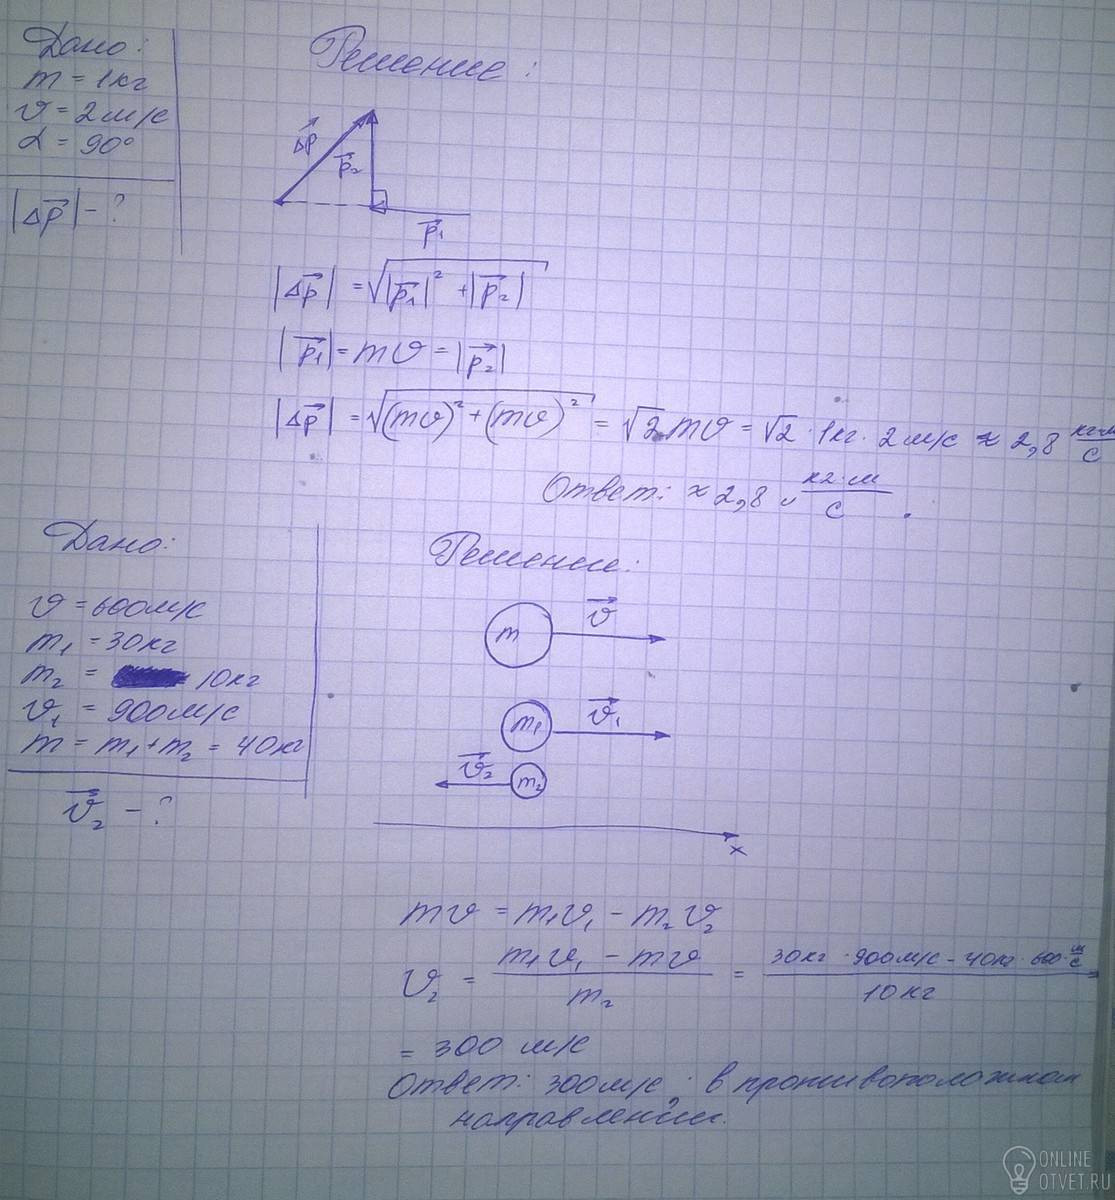 Дано:
m = 1кг
υ = 2м/с
α = 90°
|Δp⃗| - ?
Решение:
Δp⃗
p⃗₂
p⃗₁
|Δp⃗| = √(|p⃗₁|² + |p⃗₂|)
|p⃗₁| = mυ = |p⃗₂|
|Δp⃗| = √((mυ)² + (mυ)²) = √2 mυ = √2 · 1кг · 2м/с ≈ 2,8 кг·м/с
Ответ: ≈ 2,8 кг·м/с.
Дано:
υ = 600м/с
m₁ = 30кг
m₂ = 10кг
υ₁ = 900м/с
m = m₁ + m₂ = 40кг
υ⃗₂ - ?
Решение:
m υ⃗
m₁ υ⃗₁
υ⃗₂ m₂
x
mυ = m₁υ₁ - m₂υ₂
υ₂ = (m₁υ₁ - mυ)/m₂ = (30кг · 900м/с - 40кг · 600 м/с)/10кг =
= 300 м/с
Ответ: 300м/с; в противоположном
направлении.
ONLINE
OTVET.RU